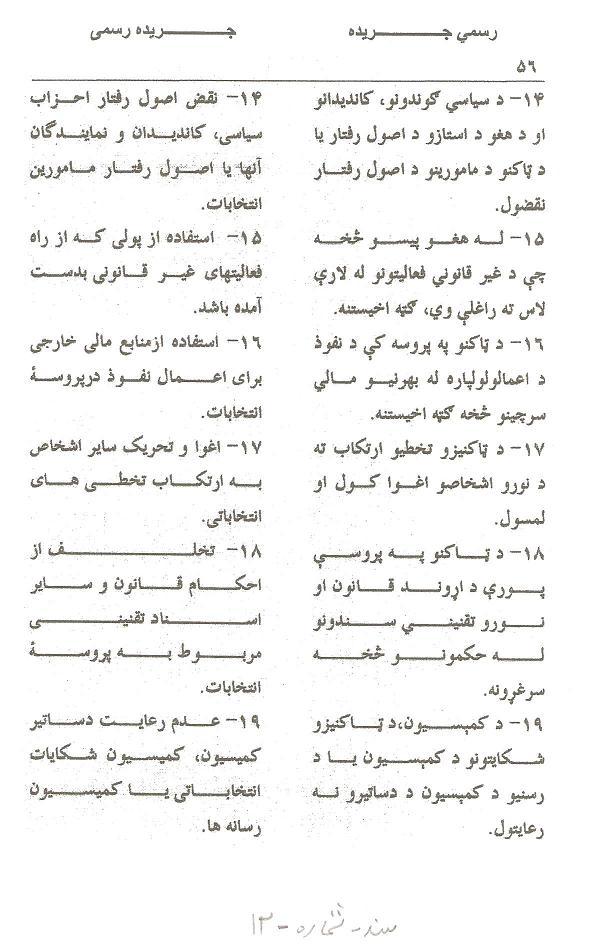 رسمي جـــريده
جـــريده رسمی
۵۶
۱۴- د سیاسي ګوندونو، کاندیدانو
او د هغو د استازو د اصول رفتار یا
د ټاکنو د مامورینو د اصول رفتار
نقضول.
۱۵- له هغو پیسو څخه
چې د غیر قانوني فعالیتونو له لارې
لاس ته راغلې وي، ګټه اخیستنه.
۱۶- د ټاکنو په پروسه کې د نفوذ
د اعمالولولپاره له بهرنیو مالي
سرچینو څخه ګټه اخیستنه.
۱۷- د ټاکنیزو تخطیو ارتکاب ته
د نورو اشخاصو اغوا کول او
لمسول.
۱۸- د ټاکنو په پروسې
پورې د اړوند قانون او
نورو تقنیني سندونو
له حکمونو څخه
سرغړونه.
۱۹- د کمېسیون،د ټاکنیزو
شکایتونو د کمېسیون یا د
رسنیو د کمېسیون د دساتیرو نه
رعایتول.
۱۴- نقض اصول رفتار احزاب
سیاسی، کاندیدان و نمایندگان
آنها یا اصول رفتار مامورین
انتخابات.
۱۵- استفاده از پولی که از راه
فعالیتهای غیر قانونی بدست
آمده باشد.
۱۶- استفاده ازمنابع مالی خارجی
برای اعمال نفوذ درپروسۀ
انتخابات.
۱۷- اغوا و تحریک سایر اشخاص
به ارتکاب تخطی های
انتخاباتی.
۱۸- تخلف از
احکام قانون و سایر
اسناد تقنینی
مربوط به پروسۀ
انتخابات.
۱۹- عدم رعایت دساتیر
کمیسیون، کمیسیون شکایات
انتخاباتی یا کمیسیون
رسانه ها.
سند شماره - ۱۳